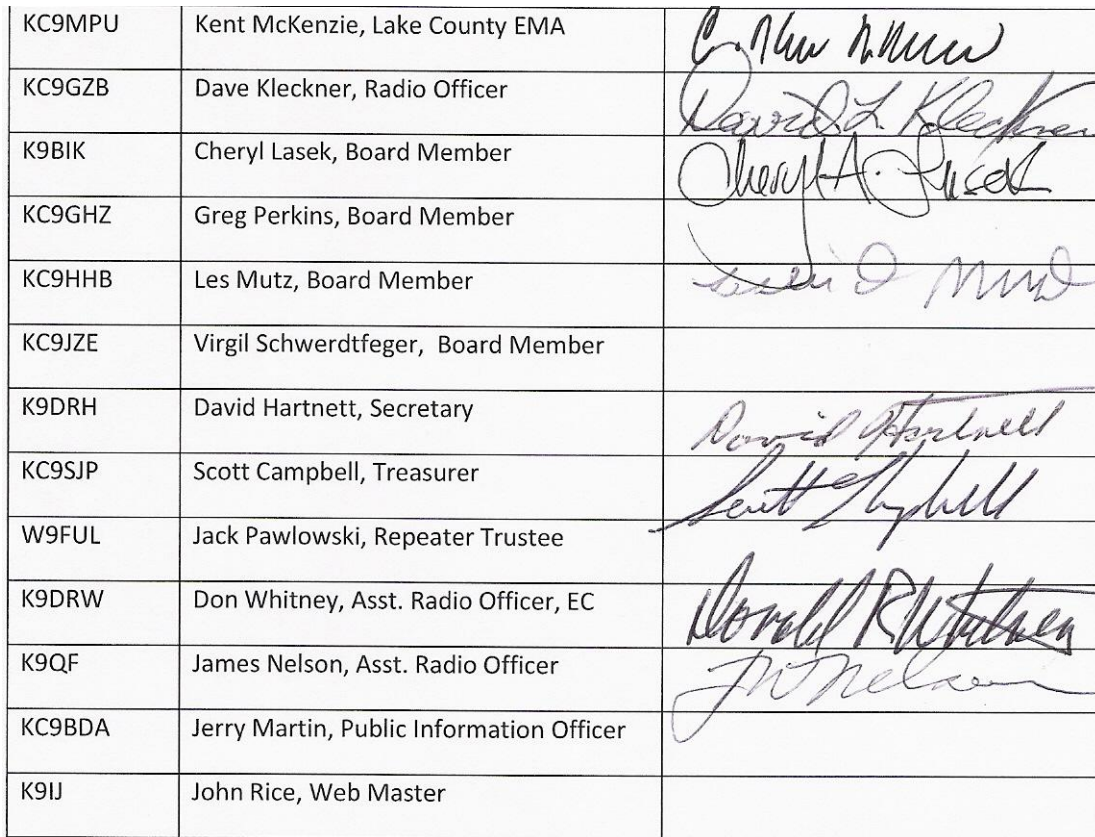 KC9MPU Kent McKenzie, Lake County EMA
KC9GZB Dave Kleckner, Radio Officer David L. Kleckner
K9BIK Cheryl Lasek, Board Member Cheryl A. Lasek
KC9GHZ Greg Perkins, Board Member
KC9HHB Les Mutz, Board Member
KC9JZE Virgil Schwerdtfeger, Board Member
K9DRH David Hartnett, Secretary David Hartnett
KC9SJP Scott Campbell, Treasurer Scott Campbell
W9FUL Jack Pawlowski, Repeater Trustee
K9DRW Don Whitney, Asst. Radio Officer, EC Donald R Whitney
K9QF James Nelson, Asst. Radio Officer Nelson
KC9BDA Jerry Martin, Public Information Officer
K9IJ John Rice, Web Master